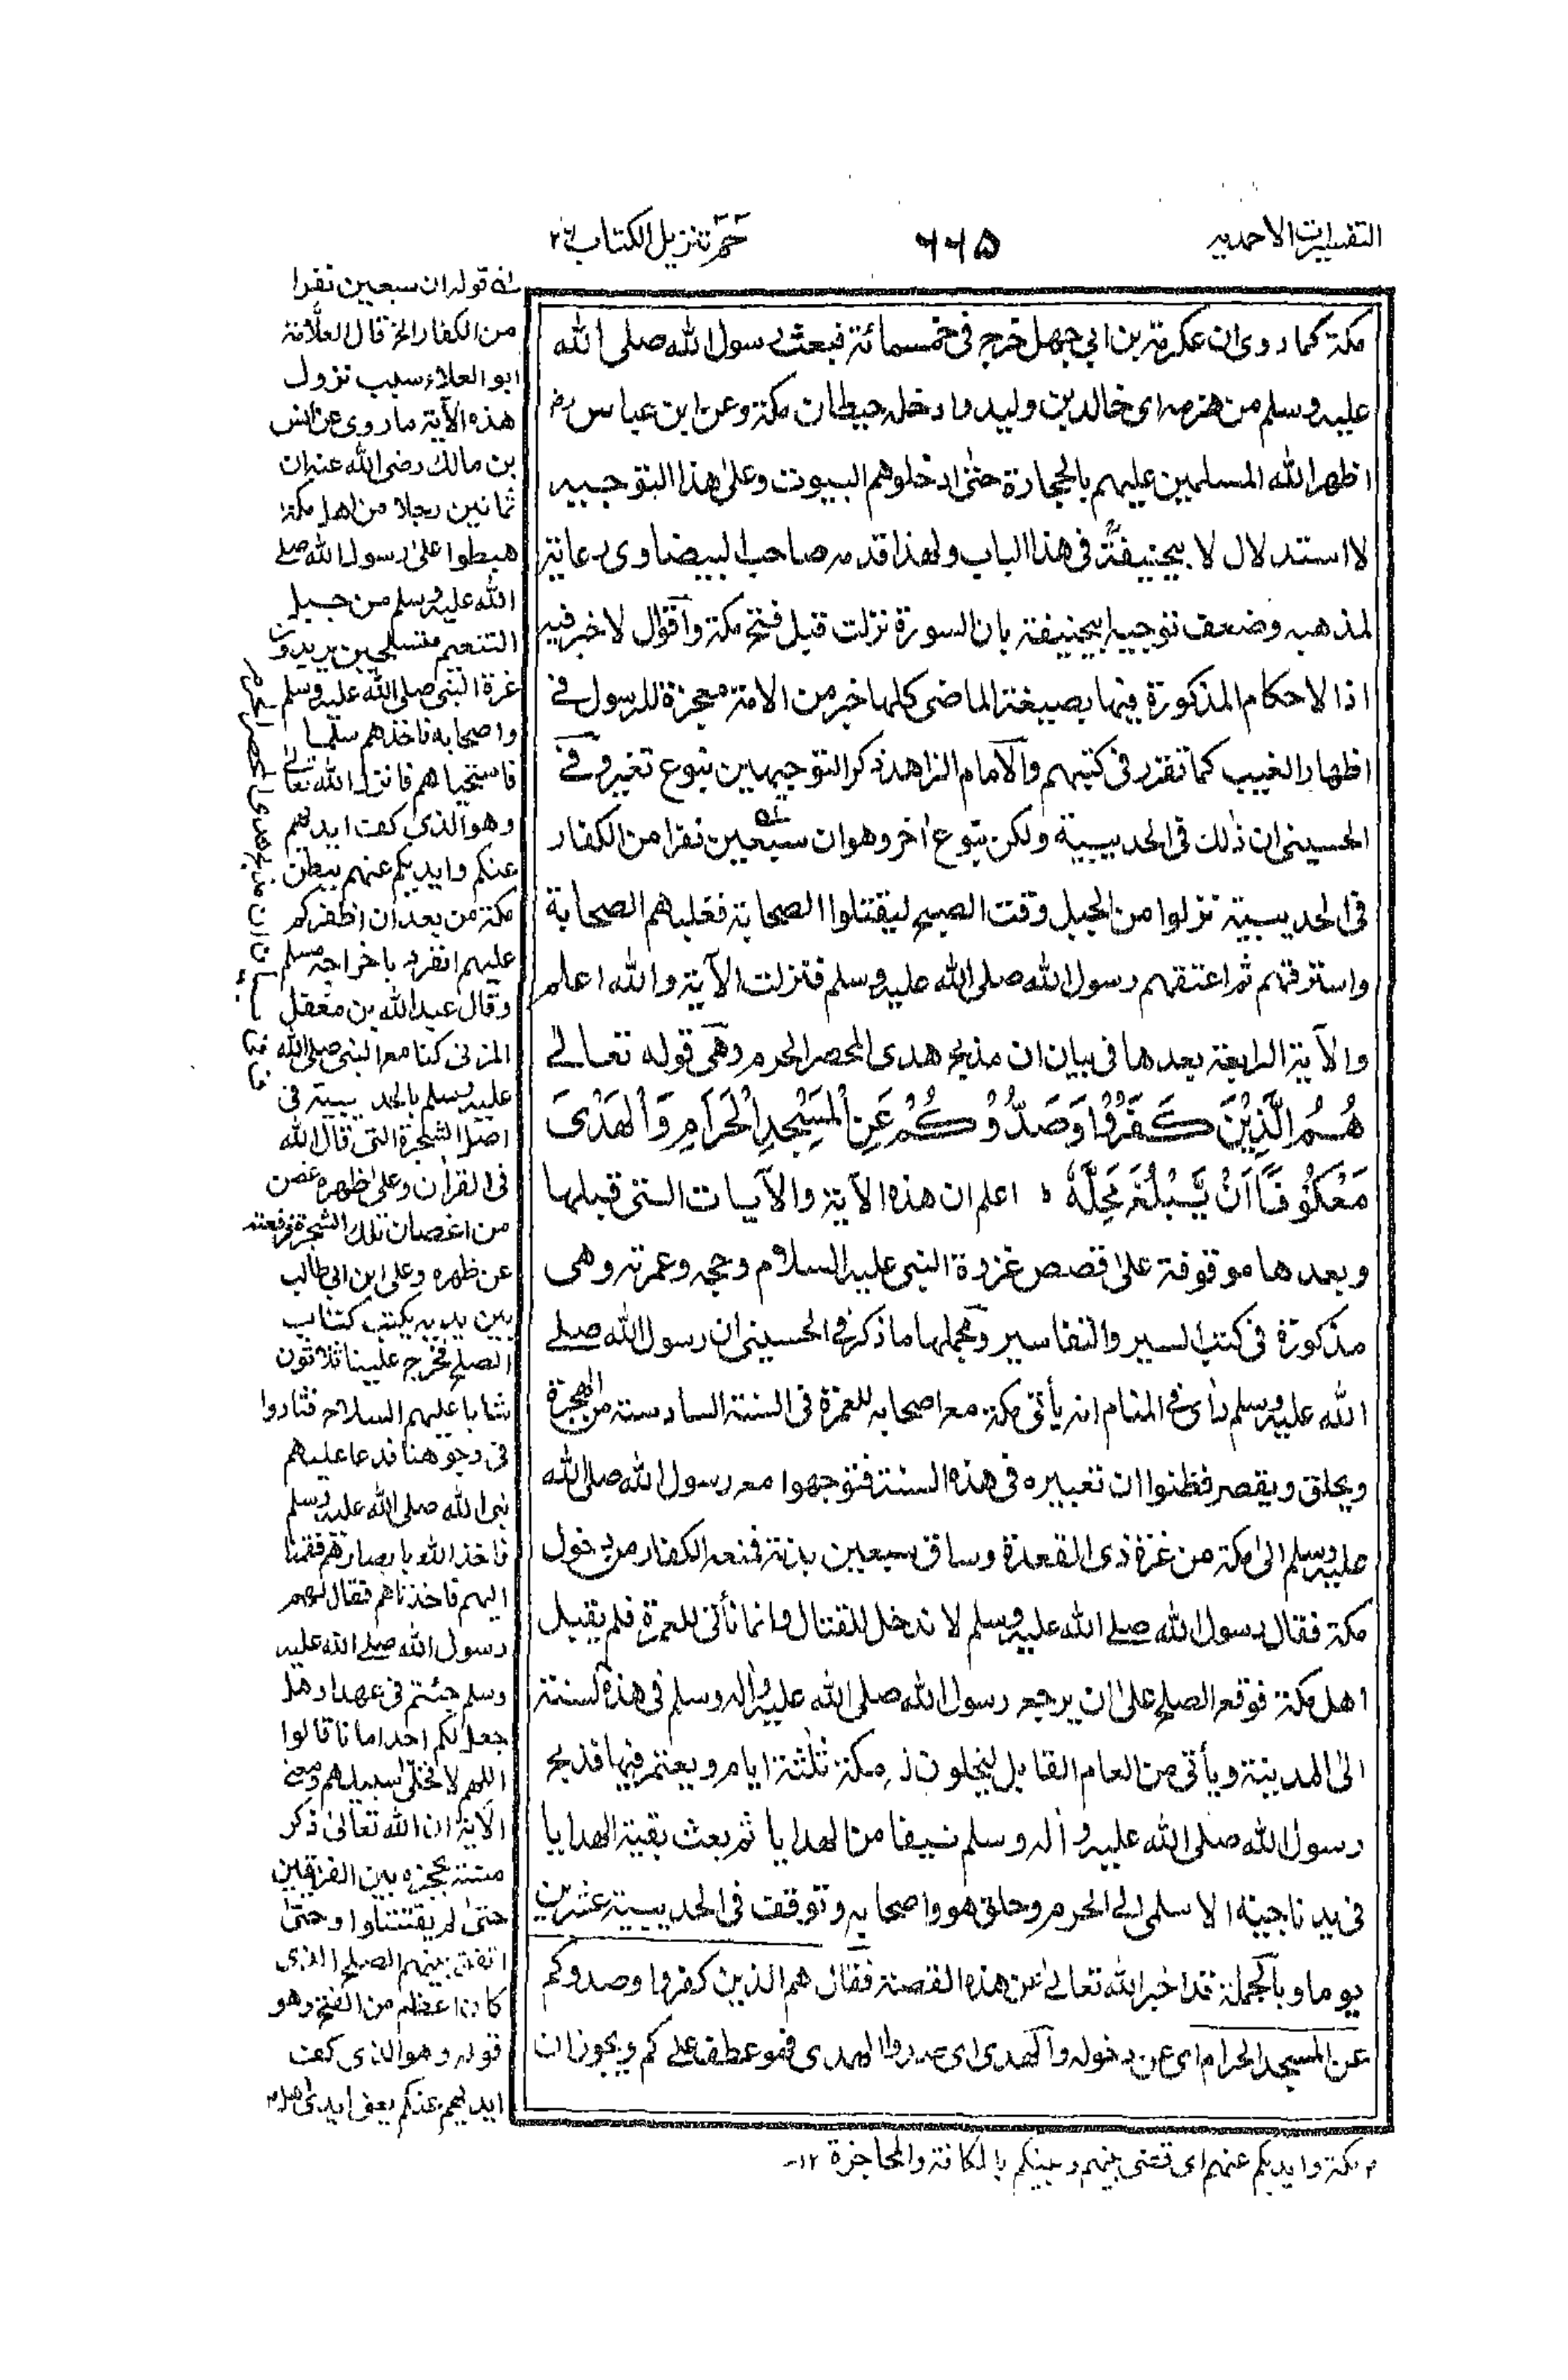 التفسيرات الاحمديه
٦٦٥
حٰمٓ تنزيل الكتاب ٢٦
مكة كما روى ان عكرمة بن ابي جهل خرج فى خمسمائة فبعث رسول الله صلى الله
عليه وسلم من هزمه اى خالد بن وليد وادخله حيطان مكة وعن ابن عباس رض
اظهر الله المسلمين عليهم بالحجارة حتى ادخلوهم البيوت وعلى هذا التوجيه
لا استدلال لابيحنيفة فى هذا الباب ولهذا قدمه صاحب البيضاوى رعاية
لمذهبه وضعف توجيه ابيحنيفة بان السورة نزلت قبل فتح مكة واقول لا خبر فيه
اذا الاحكام المذكورة فيها بصيغة الماضى كلها خبر من الامة معجزة للرسول فى
اظهار الغيب كما تقرر فى كتبهم والامام الزاهد ذكر التوجيهين بنوع تغير وفى
الحسينى ان ذلك فى الحديبية ولكن بنوع اخر وهو ان سبعين نفرا من الكفار
فى الحديبية نزلوا من الجبل وقت الصبح ليقتلوا الصحابة فغلباهم الصحابة
واسترقهم ثم اعتقهم رسول الله صلى الله عليه وسلم فنزلت الآية والله اعلم
والآية الرابعة بعدها فى بيان ان مذبح هدى المحصر الحرم وهى قوله تعالى
هُمُ الَّذِيْنَ كَفَرُوْا وَصَدُّوْكُمْ عَنِ الْمَسْجِدِ الْحَرَامِ وَالْهَدْىَ
مَعْكُوْفًا اَنْ يَّبْلُغَ مَحِلَّهٗ ه اعلم ان هذه الآية والآيات التى قبلها
وبعدها موقوفة على قصص غزوة النبى عليه السلام وحجه وعمرته وهى
مذكورة فى كتب السير والتفاسير ومجملها ما ذكر فى الحسينى ان رسول الله صلى
الله عليه وسلم رأى فى المنام انه يأتى مكة مع اصحابه للعمرة فى السنة السادسة من الهجرة
ويحلق ويقصر فظنوا ان تعبيره فى هذه السنة فتوجهوا مع رسول الله صلى الله
عليه وسلم الى مكة من غرة ذى القعدة وساق سبعين بدنة فمنعه الكفار من دخول
مكة فقال رسول الله صلى الله عليه وسلم لا ندخل للقتال وانما نأتى للعمرة فلم يقبل
اهل مكة فوقع الصلح على ان يرجع رسول الله صلى الله عليه واله وسلم فى هذه السنة
الى المدينة ويأتى من العام القابل ليخلون مكة ثلثة ايام ويعتمر فيها فذبح
رسول الله صلى الله عليه واله وسلم نيفا من الهدايا ثم بعث بقية الهدايا
فى يد ناجية الاسلمى الى الحرم وحلق هو واصحابه وتوقف فى الحديبية عشرين
يوما وبالجملة فقد اخبر الله تعالى عن هذه القصة فقال هم الذين كفروا وصدوكم
عن المسجد الحرام اى عن دخوله والهدى اى صدوا الهدى فهو عطف على كم ويجوز ان
له قوله ان سبعين نفرا
من الكفار الخ قال العلامة
ابو العلاء سبب نزول
هذه الآية ما روى عن انس
بن مالك رضى الله عنه ان
ثمانين رجلا من اهل مكة
هبطوا على رسول الله صلى
الله عليه وسلم من جبل
التنعيم متسلحين يريدون
غرة النبى صلى الله عليه وسلم
واصحابه فاخذهم سلما
فاستحياهم فانزل الله تعالى
وهو الذى كف ايديهم
عنكم وايديكم عنهم ببطن
مكة من بعد ان اظفركم
عليهم انفرد باخراجه مسلم
وقال عبد الله بن مغفل
المزنى كنا مع النبى صلى الله
عليه وسلم بالحديبية فى
اصل الشجرة التى قال الله
فى القرآن وعلى ظهره غصن
من اغصان تلك الشجرة فرفعته
عن ظهره وعلى ابن ابى طالب
بين يديه يكتب كتاب
الصلح فخرج علينا ثلاثون
شابا عليهم السلاح فثاروا
فى وجوهنا فدعا عليهم
نبى الله صلى الله عليه وسلم
فاخذ الله بابصارهم فقمنا
اليهم فاخذناهم فقال لهم
رسول الله صلى الله عليه
وسلم جئتم فى عهد او هل
جعل لكم احد امانا قالوا
اللهم لا فخلى سبيلهم ومعنى
الآية ان الله تعالى ذكر
منته بحجزه بين الفريقين
حتى لم يقتتلوا وحتى
اتفق بينهم الصلح الذى
كان اعظم من الفتح وهو
قوله وهو الذى كف
ايديهم عنكم يعنى ايدى اهل م
م مكة وايديكم عنهم اى قضى بينهم وبينكم بالمكافة والمحاجزة ١٢-